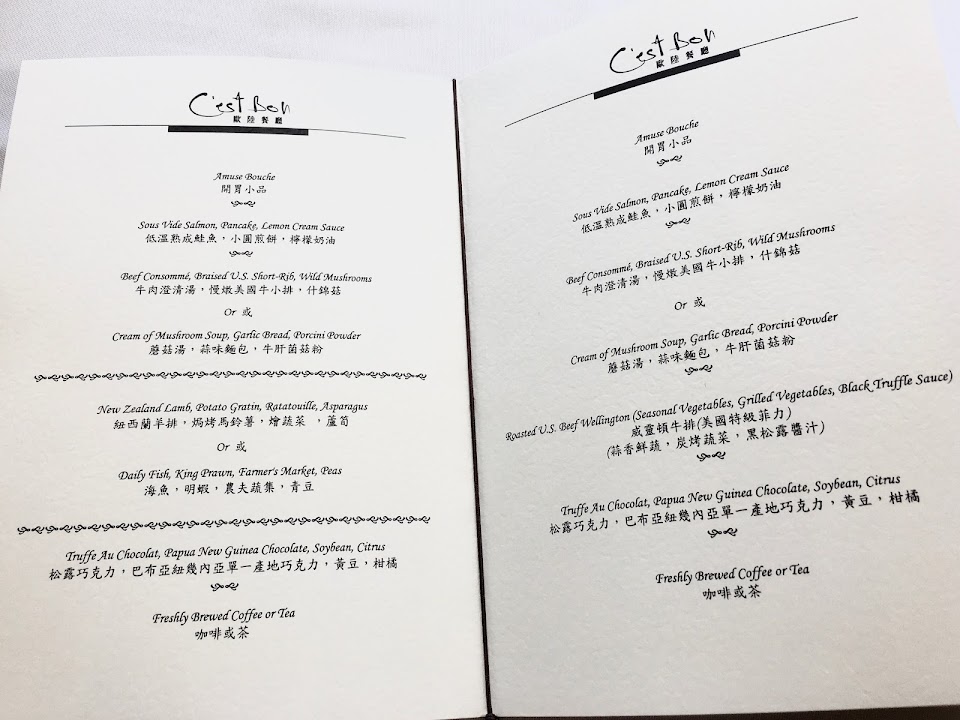 C'est Bon
歐陸餐廳
Amuse Bouche
開胃小品
Sous Vide Salmon, Pancake, Lemon Cream Sauce
低溫熟成鮭魚，小圓煎餅，檸檬奶油
Beef Consommé, Braised U.S. Short-Rib, Wild Mushrooms
牛肉澄清湯，慢燉美國牛小排，什錦菇
Or 或
Cream of Mushroom Soup, Garlic Bread, Porcini Powder
蘑菇湯，蒜味麵包，牛肝菌菇粉
New Zealand Lamb, Potato Gratin, Ratatouille, Asparagus
紐西蘭羊排，焗烤馬鈴薯，燴蔬菜 ，蘆筍
Or 或
Daily Fish, King Prawn, Farmer's Market, Peas
海魚，明蝦，農夫蔬集，青豆
Truffe Au Chocolat, Papua New Guinea Chocolate, Soybean, Citrus
松露巧克力，巴布亞紐幾內亞單一產地巧克力，黃豆，柑橘
Freshly Brewed Coffee or Tea
咖啡或茶
C'est Bon
歐陸餐廳
Amuse Bouche
開胃小品
Sous Vide Salmon, Pancake, Lemon Cream Sauce
低溫熟成鮭魚，小圓煎餅，檸檬奶油
Beef Consommé, Braised U.S. Short-Rib, Wild Mushrooms
牛肉澄清湯，慢燉美國牛小排，什錦菇
Or 或
Cream of Mushroom Soup, Garlic Bread, Porcini Powder
蘑菇湯，蒜味麵包，牛肝菌菇粉
Roasted U.S. Beef Wellington (Seasonal Vegetables, Grilled Vegetables, Black Truffle Sauce)
威靈頓牛排(美國特級菲力)
(蒜香鮮蔬，炭烤蔬菜，黑松露醬汁)
Truffe Au Chocolat, Papua New Guinea Chocolate, Soybean, Citrus
松露巧克力，巴布亞紐幾內亞單一產地巧克力，黃豆，柑橘
Freshly Brewed Coffee or Tea
咖啡或茶